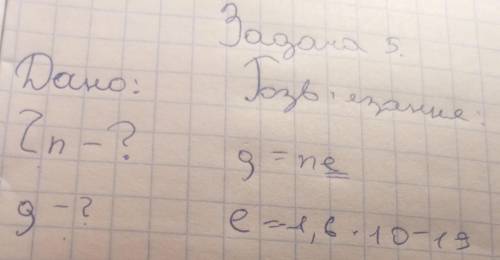 Задача 5.
Дано: Розв'язання:
Zn - ?
q = ne
q - ?
e = 1,6 · 10 - 19